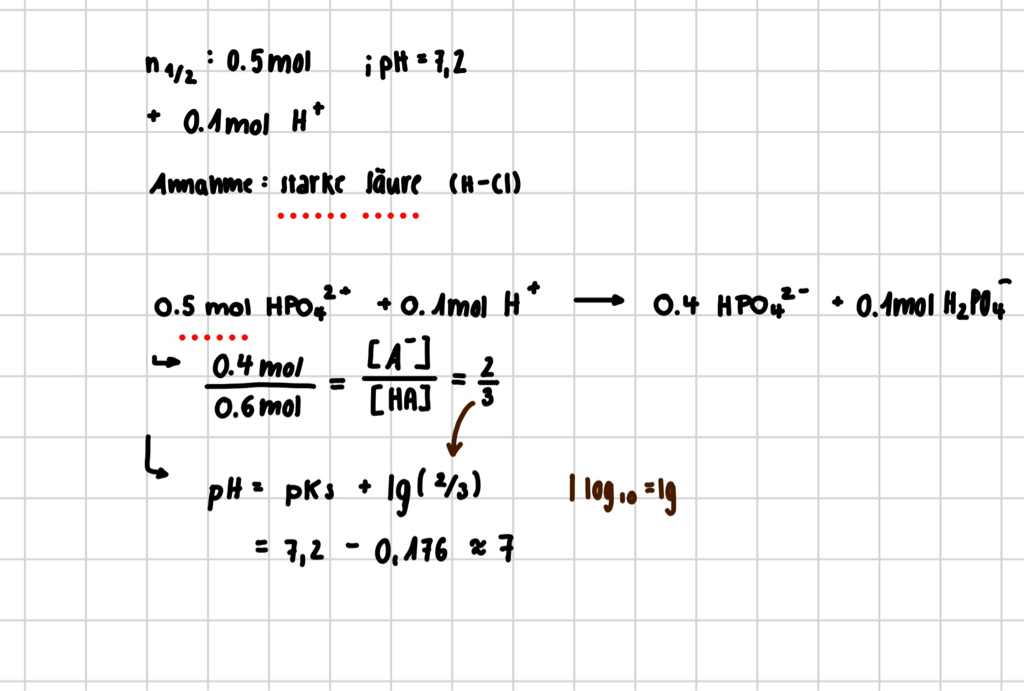 n₁/₂ : 0.5 mol ; pH = 7,2
+ 0.1 mol H⁺
Annahme: starke Säure (H-Cl)
0.5 mol HPO₄²⁺ + 0.1 mol H⁺ → 0.4 HPO₄²⁻ + 0.1 mol H₂PO₄⁻
↳ 0.4 mol / 0.6 mol = [A⁻] / [HA] = 2/3
↳ pH = pKs + lg(2/3) | log₁₀ = lg
= 7,2 - 0,176 ≈ 7